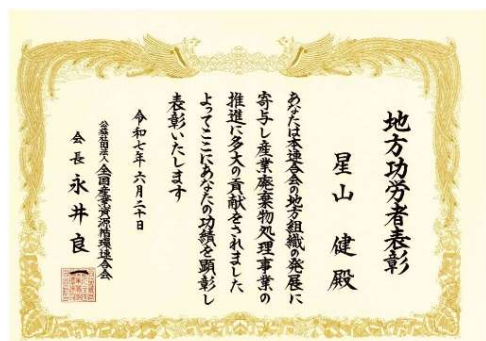 地方功労者表彰
星山 健 殿
あなたは本連合会の地方組織の発展に
寄与し産業廃棄物処理事業の
推進に多大の貢献をされました
よってここにあなたの功績を顕彰し
表彰いたします
令和七年六月二十日
公益社団法人 全国産業資源循環連合会
会長 永井良一